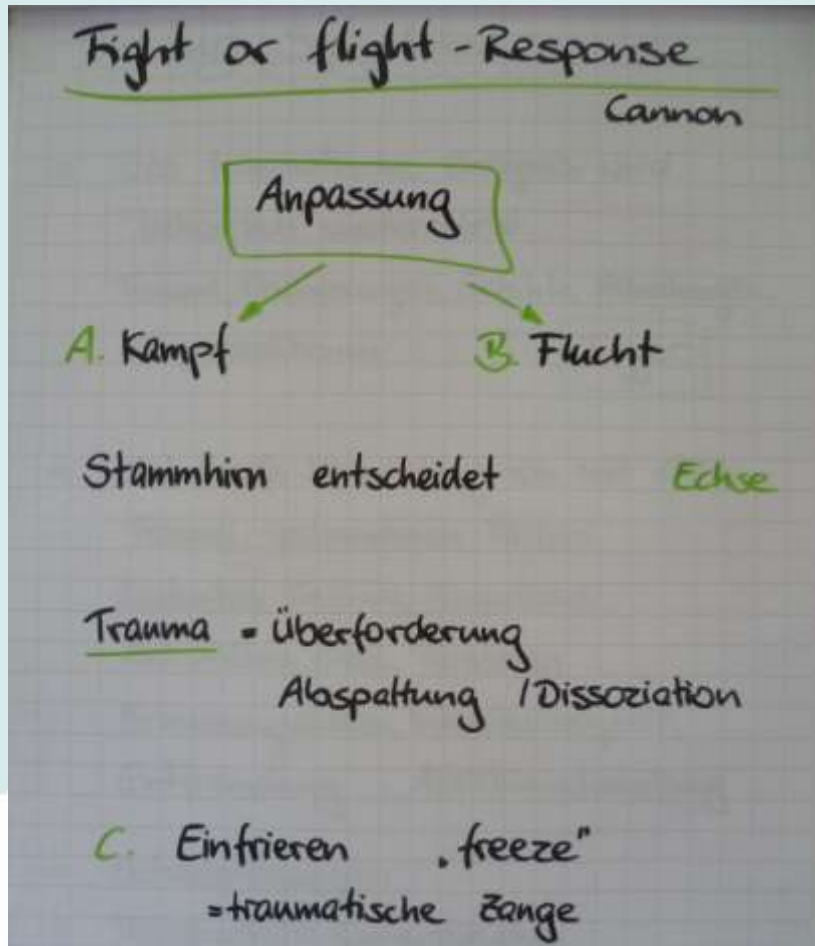 Fight or flight - Response
Cannon
Anpassung
A. Kampf B. Flucht
Stammhirn entscheidet Echse
Trauma = Überforderung
Abspaltung / Dissoziation
C. Einfrieren „freeze"
= traumatische Zange